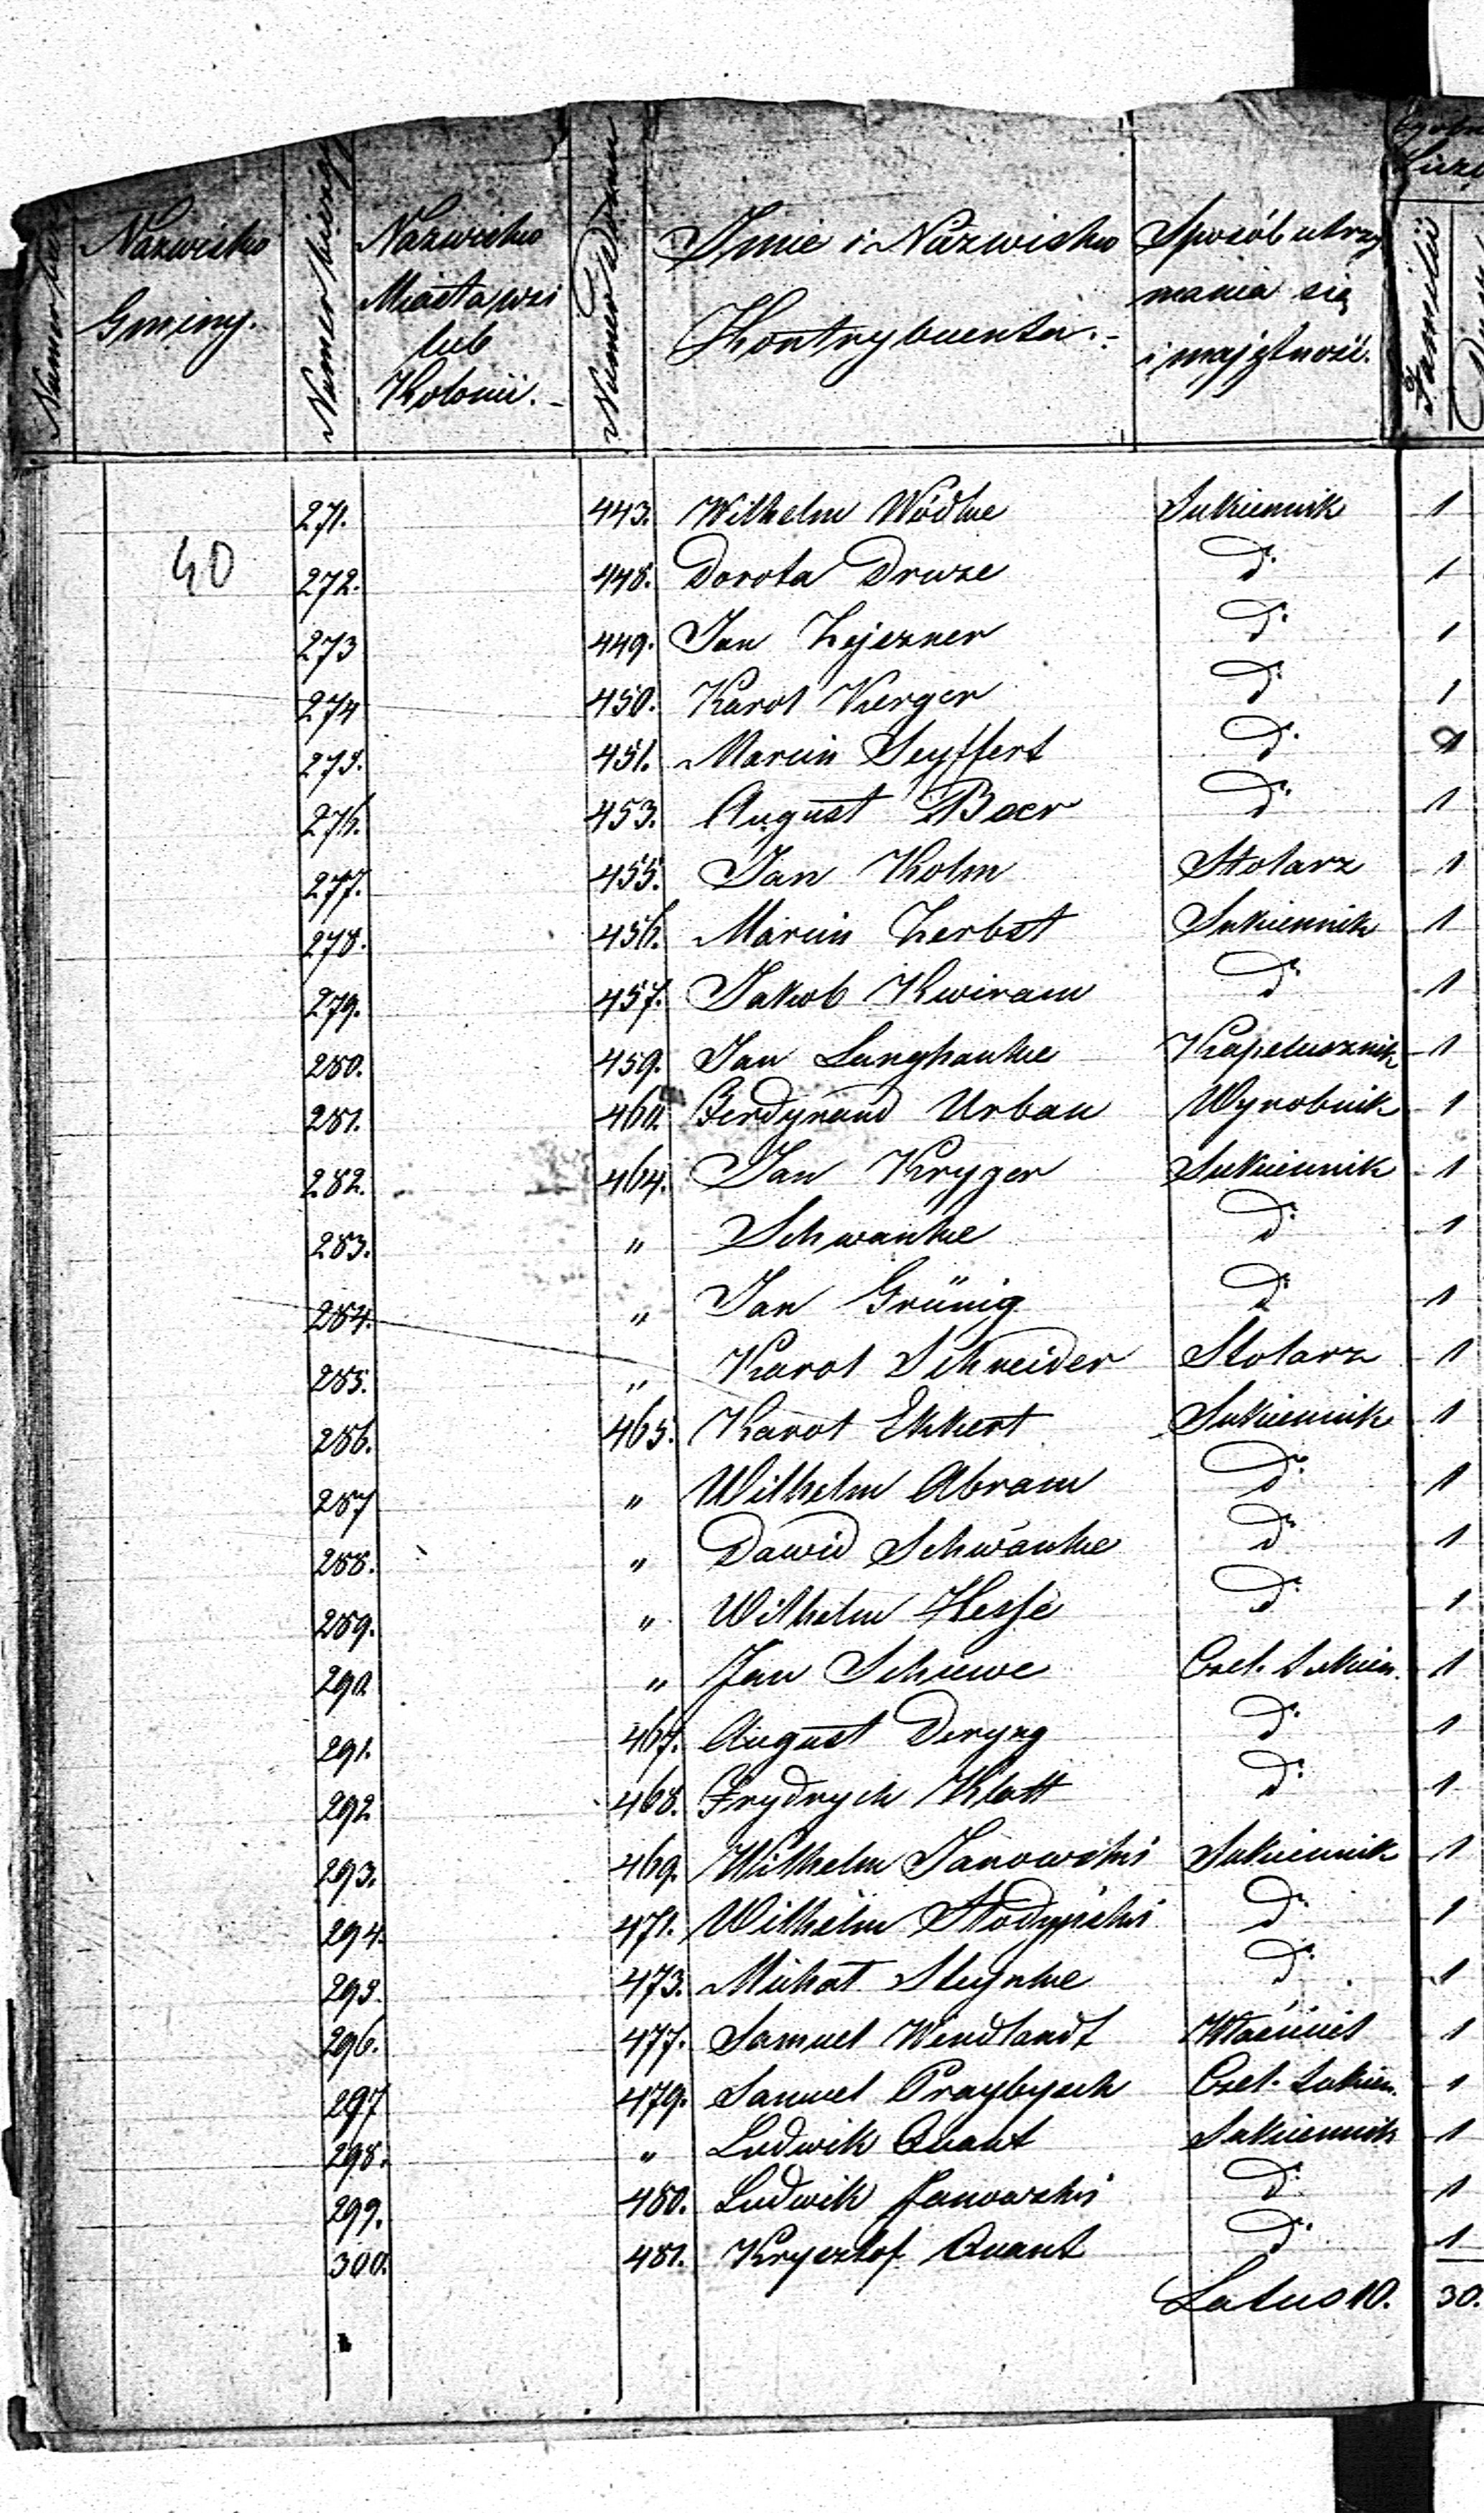 Nazwisko Gminy.
Numer bieżący
Nazwisko Miasta wsi lub Kolonii.
Numer Domu
Imie i Nazwisko Kontrybuenta.
Sposób utrzymania się i majętność.
Familii
40
271. 443. Wilhelm Wódke Sukiennik 1
272. 448. Dorota Druse d. 1
273 449. Jan Zejezner d. 1
274 450. Karol Kerger d. 1
275. 451. Marcin Seyffert d. 1
276. 453. August Boer d. 1
277. 455. Jan Kolm Stolarz 1
278. 456. Marcin Zerbst Sukiennik 1
279. 457. Jakob Kwiram d. 1
280. 459. Jan Langhanke Kapelusznik 1
281. 460. Ferdynand Urban Wyrobnik 1
282. 464. Jan Kryger Sukiennik 1
283. " Schwanke d. 1
284. " Jan Grünig d. 1
285. " Karol Schneider Stolarz 1
286. 465. Karol Ekkert Sukiennik 1
287 " Wilhelm Abram d. 1
288. " Dawid Schwanke d. 1
289. " Wilhelm Hesse d. 1
290. " Jan Schewe Czel. Sukien. 1
291. 467. August Deryng d. 1
292 468. Frydrych Klatt d. 1
293. 469. Wilhelm Janowski Sukiennik 1
294. 471. Wilhelm d. 1
295. 473. Michał Steynke d. 1
296. 477. Samuel Wendlandt Właściciel 1
297 479. Samuel Przybysch Czel. Sukien. 1
298. " Ludwik Quant Sukiennik 1
299. 480. Ludwik Janowski d. 1
300. 481. Krysztof Quant d. 1
Latus 10. 30.